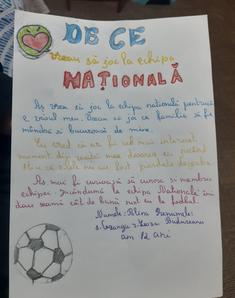 DE CE
vreau să joc la echipa
NAȚIONALĂ
Aș vrea să joc la echipa națională pentru că
e visul meu. Vreau să fac ca familia să fie
mândră și bucuroasă de mine.
Eu cred că ar fi cel mai interesant
moment din viața mea deoarece
Aș mai fi curioasă să cunosc și membrii
echipei. Gândindu-mă la echipa Națională îmi
dau seama cât de bună sunt eu la fotbal.
Numele: Prenumele:
am 12 ani